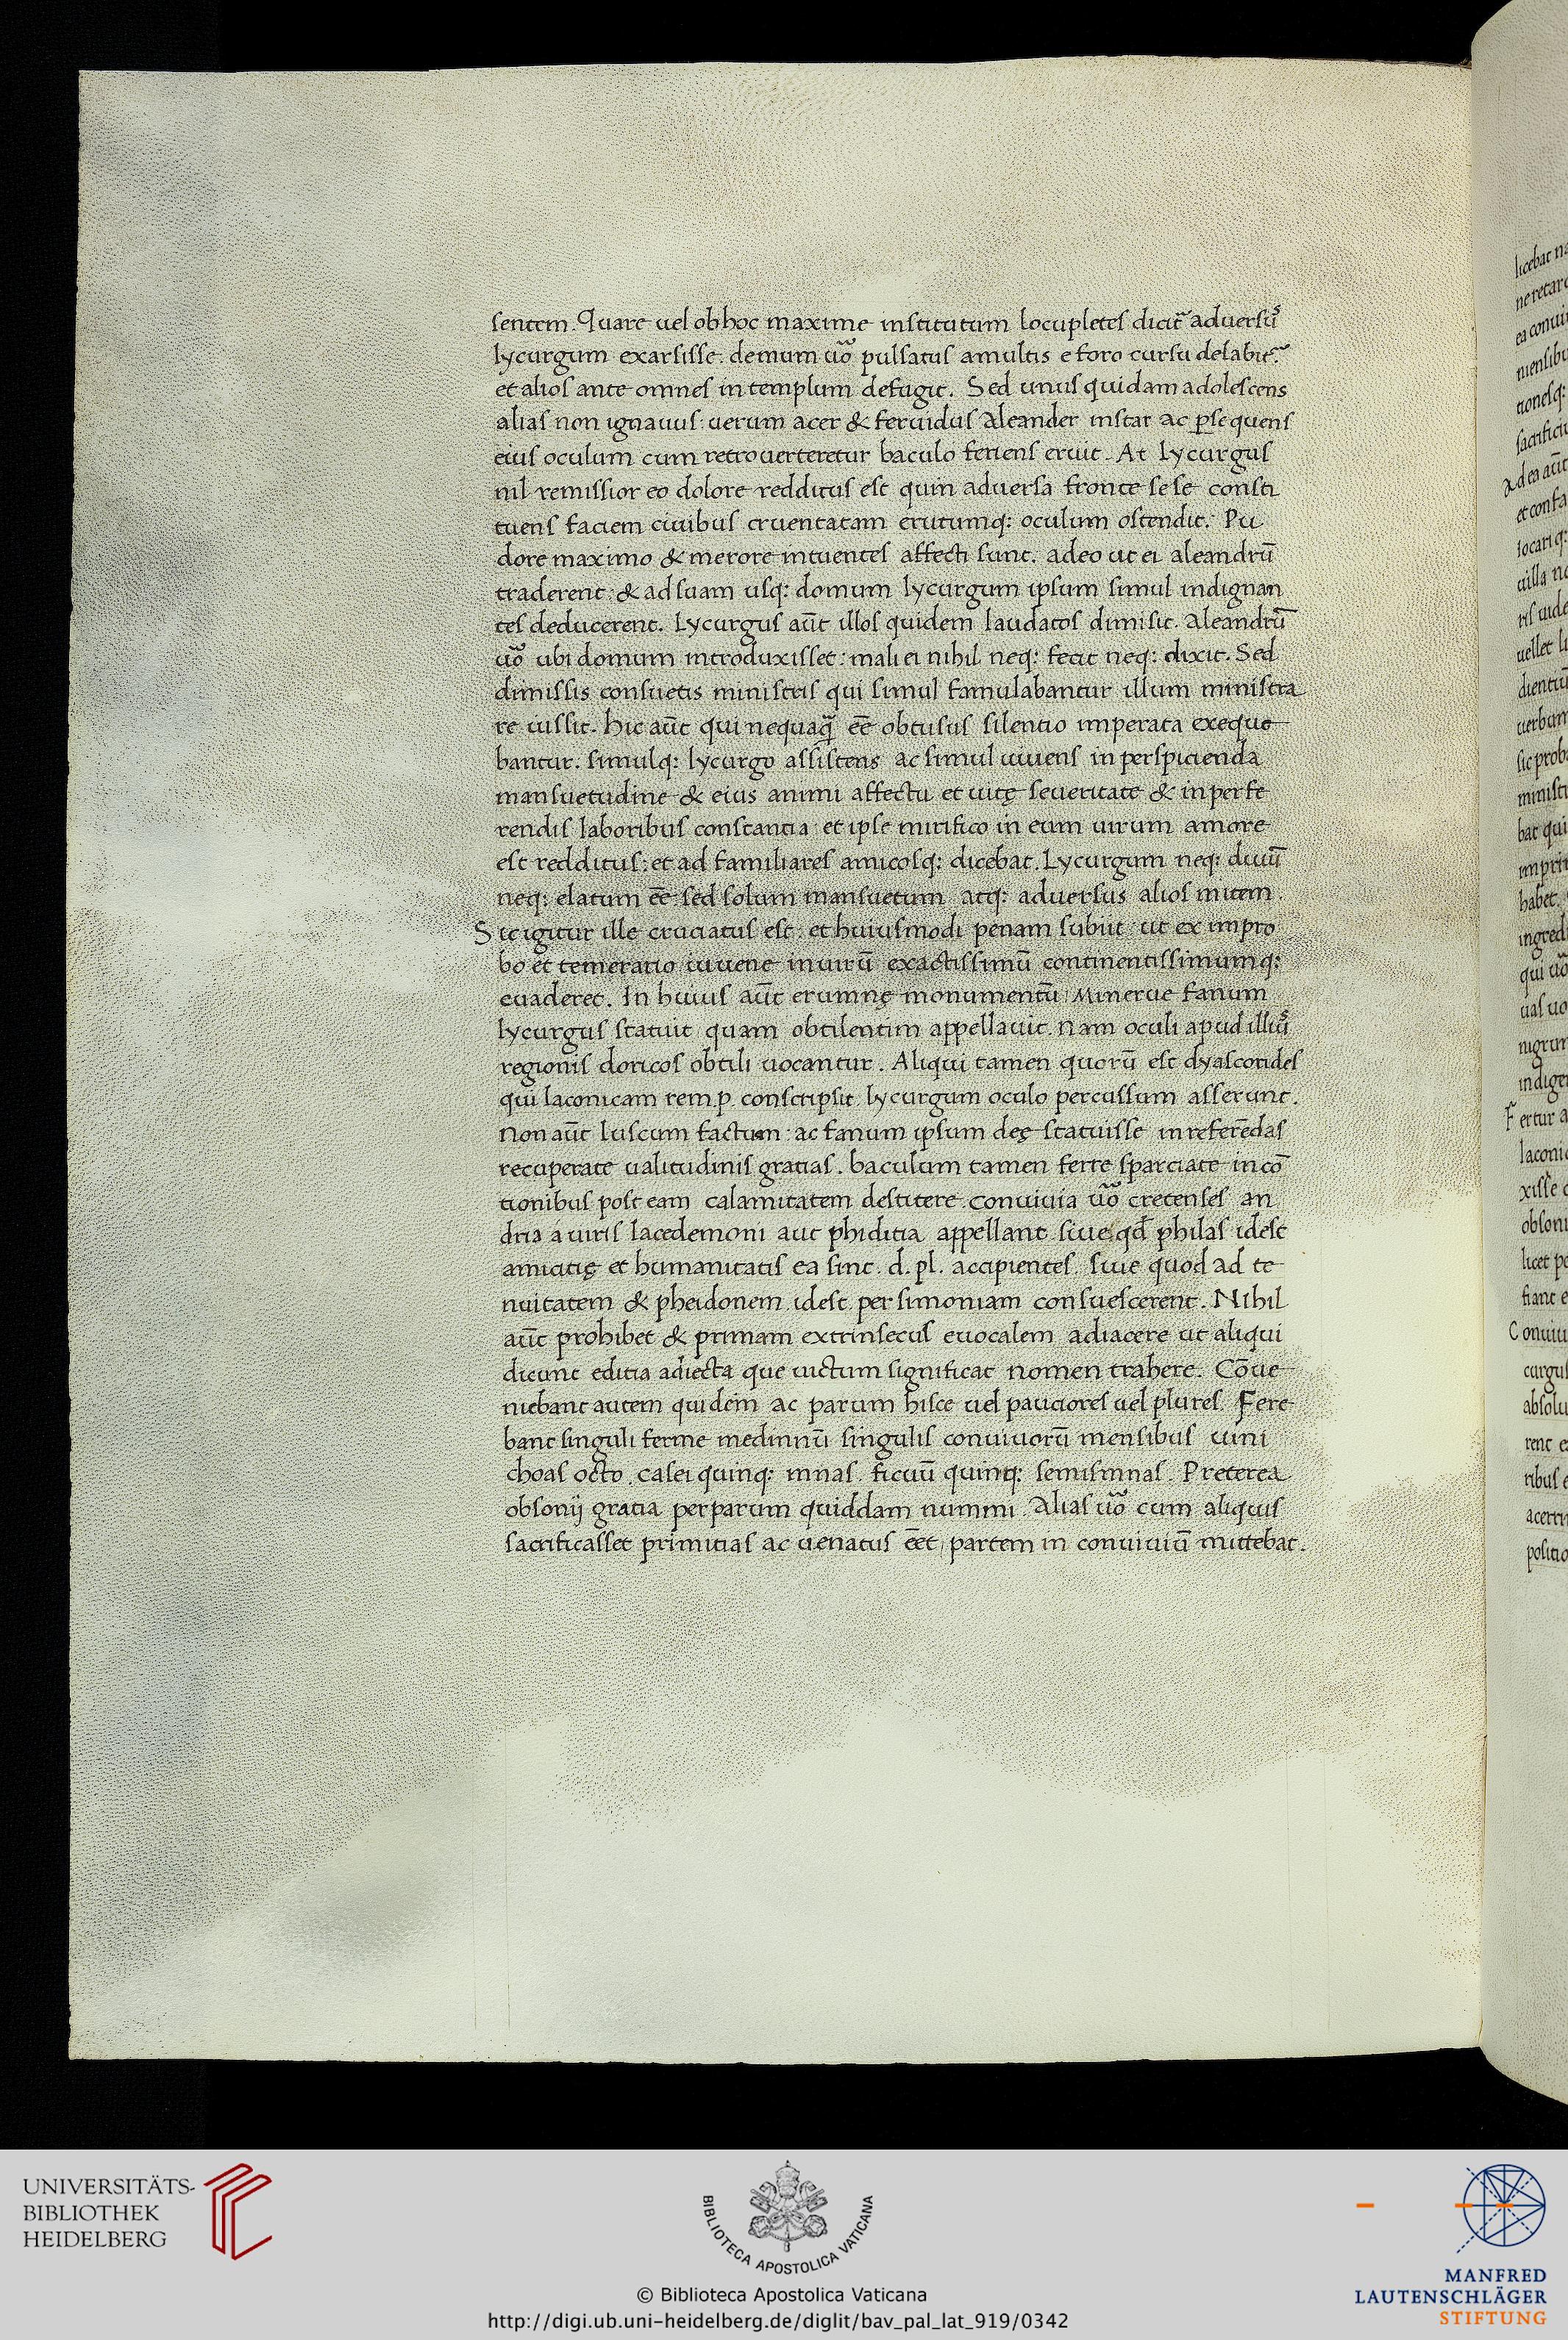 sentem. Quare uel ob hoc maxime institutum locupletes dicit᷑ aduersũ
lycurgum exarsisse. demum uõ pulsatus a multis e foro cursu delabit᷑.
et alios ante omnes in templum defugit. Sed unus quidam adolescens
alias non ignauus: uerum acer & feruidus Aleander instat ac ꝑsequens
eius oculum cum retro uerteretur baculo feriens eruit. At lycurgus
nil remissior eo dolore redditus est quin aduersa fronte sese consti
tuens faciem ciuibus cruentatam erutumq: oculum ostendit. Pu
dore maximo & merore intuentes affecti sunt. adeo ut ei aleandrũ
traderent: & ad suam usq: domum lycurgum ipsum simul indignan
tes deducerent. Lycurgus aũt illos quidem laudatos dimisit. Aleandrũ
uõ ubi domum introduxisset: mali ei nihil neq: fecit neq: dixit. Sed
dimissis consuetis ministris qui simul famulabantur illum ministra
re iussit. Hic aũt qui nequaq̃ eẽ obtusus silentio imperata exeque
bantur. simulq: lycurgo assistens ac simul uiuens in perspicienda
mansuetudine & eius animi affectu et uitę seueritate & in perfe
rendis laboribus constantia: et ipse mirifico in eum uirum amore
est redditus: et ad familiares amicosq: dicebat. Lycurgum neq: diuũ
neq: elatum eẽ: sed solum mansuetum atq: aduersus alios mitem.
Sic igitur ille cruciatus est: et huiusmodi penam subiit: ut ex impro
bo et temerario iuuene in uirũ exactissimũ continentissimumq:
euaderet. In huius aũt erumnę monumentũ Minerue fanum
lycurgus statuit quam obtilentim appellauit. Nam oculi apud illiũ
regionis doricos obtili uocantur. Aliqui tamen quorũ est dyascorides
qui laconicam rem.p. conscripsit. lycurgum oculo percussum asserunt.
Non aũt luscum factum: ac fanum ipsum deę statuisse in referẽdas
recuperate ualitudinis gratias. baculum tamen ferre sparciate in cõ
tionibus post eam calamitatem destitere. Conuiuia uõ cretenses an
dria á uiris lacedemoni aut phiditia appellant. siue qđ philas idest
amicitię et humanitatis ea sint. d. pl. accipientes. siue quod ad te
nuitatem & pheidonem idest. persimoniam consuescerent. Nihil
aũt prohibet & primam extrinsecus euocalem adiacere ut aliqui
dicunt editia adiecta que uictum significat nomen trahere. Cõue
niebant autem quidem ac parum hisce uel pauciores uel plures. Fere
bant singuli ferme medimnũ singulis conuiuorũ mensibus uini
choas octo. Casei quinq: mnas. ficuũ quinq: semismnas. Preterea
obsonij gratia perparum quiddam nummi. Alias uõ cum aliquis
sacrificasset primitias ac uenatus eẽt, partem in conuiuiũ mittebat.
UNIVERSITÄTS-
BIBLIOTHEK
HEIDELBERG
BIBLIOTECA APOSTOLICA VATICANA
© Biblioteca Apostolica Vaticana
http://digi.ub.uni-heidelberg.de/diglit/bav_pal_lat_919/0342
MANFRED
LAUTENSCHLÄGER
STIFTUNG